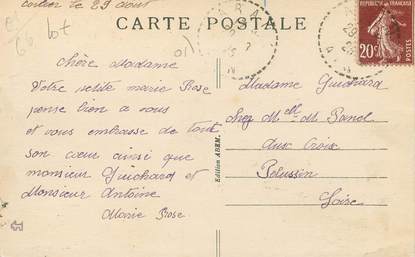 le 29 août
CARTE POSTALE
RÉPUBLIQUE FRANÇAISE
20c
POSTES
chère Madame
Votre petite marie Rose
pense bien a vous
et vous embrasse de tout
son cœur ainsi que
monsieur Guichard et
Monsieur Antoine
Marie Rose
Edition ABEM.
Madame Guichard
chez Melle M. Banel
aux Croix
Pelussin
Loire